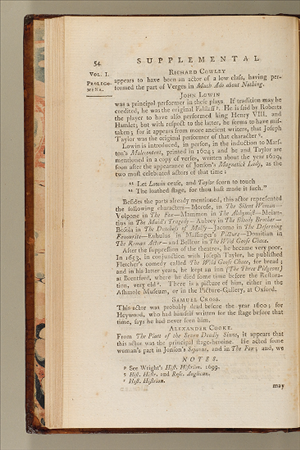 54
SUPPLEMENTAL
VOL. I.
PROLEGO-
MENA.
RICHARD COWLEY
appears to have been an actor of a low class, having per-
formed the part of Verges in Much Ado about Nothing.
JOHN LOWIN
was a principal performer in these plays. If tradition may be
credited, he was the original Falstaff. He is said by Roberts
the player to have also performed king Henry VIII. and
Hamlet; but with respect to the latter, he seems to have mis-
taken; for it appears from more ancient writers, that Joseph
Taylor was the original performer of that character.
Lowin is introduced, in person, in the induction to Mars-
ton's Malecontent, printed in 1604; and he and Taylor are
mentioned in a copy of verses, written about the year 1609,
soon after the appearance of Jonson's Magnetick Lady, as the
two most celebrated actors of that time:
" Let Lowin cease, and Taylor scorn to touch
" The loathed stage, for thou hast made it such."
Besides the parts already mentioned, this actor represented
the following characters—Morose, in The Silent Woman—
Volpone in The Fox—Mammon in The Alchymist—Melan-
tius in The Maid's Tragedy—Aubrey in The Bloody Brother—
Bosola in The Dutchess of Malfy—Jacomo in The Deserving
Favourite—Eubulus in Massinger's Picture—Domitian in
The Roman Actor—and Belleur in The Wild Goose Chace.
After the suppression of the theatres, he became very poor.
In 1653, in conjunction with Joseph Taylor, he published
Fletcher's comedy called The Wild Goose Chace, for bread;
and in his latter years, he kept an inn (The Three Pidgeons)
at Brentford, where he died some time before the Restora-
tion, very old. There is a picture of him, either in the
Ashmole Museum, or in the Picture-Gallery, at Oxford.
SAMUEL CROSS.
This actor was probably dead before the year 1600; for
Heywood, who had himself written for the stage before that
time, says he had never seen him.
ALEXANDER COOKE.
From The Platt of the Seven Deadly Sinns, it appears that
this actor was the principal stage-heroine. He acted some
woman's part in Jonson's Sejanus, and in The Fox; and, we
NOTES.
See Wright's Hist. Histrion. 1699.
Hist. Histr. and Rosc. Anglican.
Hist. Histrion.
may